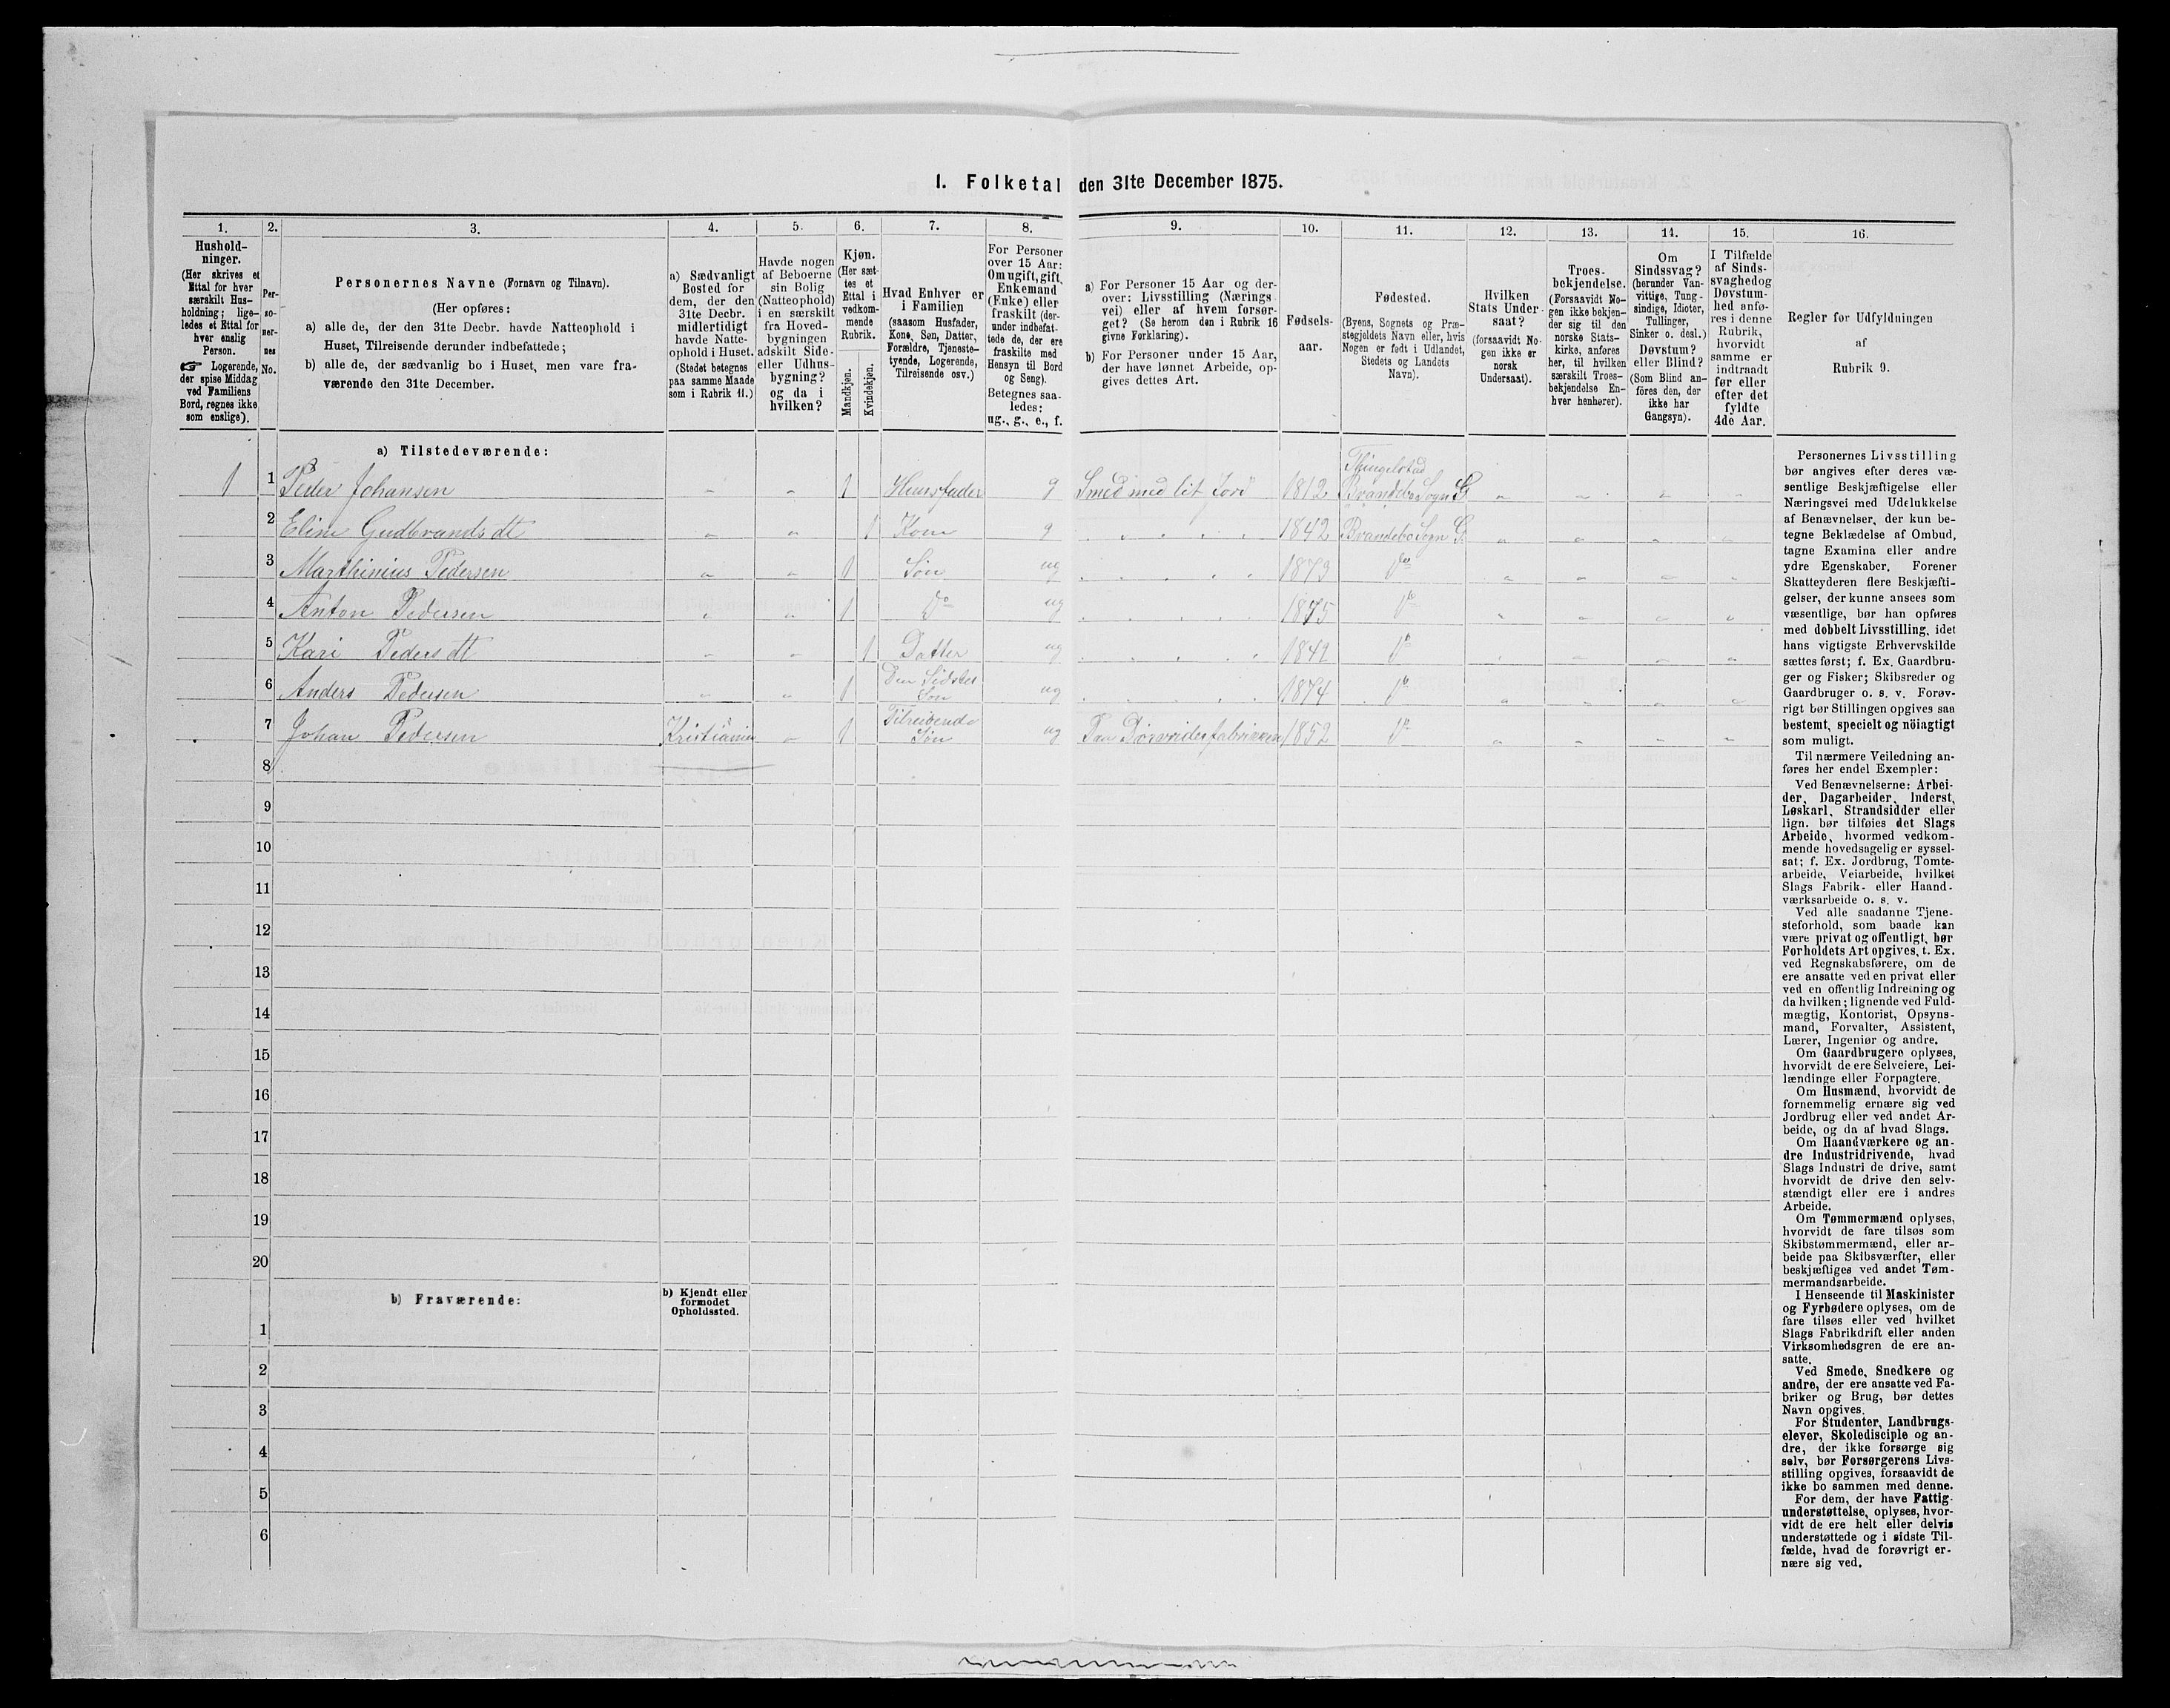 1. Folketal den 31te December 1875.
1.
Hushold-
ninger.
(Her skrives et
Ettal for hver
særskilt Hus-
holdning; lige-
ledes et Ettal for
hver enslig
Person.
☞ Logerende,
der spise Middag
ved Familiens
Bord, regnes ikke
som enslige).
2.
Per-
so-
ner-
nes
No.
3.
Personernes Navne (Fornavn og Tilnavn).
(Her opføres:
a) alle de, der den 31te Decbr. havde Natteophold i
Huset, Tilreisende derunder indbefattede;
b) alle de, der sædvanlig bo i Huset, men vare fra-
værende den 31te December.
4.
a) Sædvanligt
Bosted for
dem, der den
31te Decbr.
midlertidigt
havde Natte-
ophold i Huset.
(Stedet betegnes
paa samme Maade
som i Rubrik 11.)
5.
Havde nogen
af Beboerne
sin Bolig
(Natteophold)
i en særskilt
fra Hoved-
bygningen
adskilt Side-
eller Udhus-
bygning?
og da i
hvilken?
6.
Kjøn.
(Her sæt-
tes et
Ettal i
vedkom-
mende
Rubrik.
Mandkjøn.
Kvindekjøn.
7.
Hvad Enhver er
i Familien
(saasom Husfader,
Kone, Søn, Datter,
Forældre, Tjeneste-
tyende, Logerende,
Tilreisende osv.)
8.
For Personer
over 15 Aar:
Om ugift, gift,
Enkemand
(Enke) eller
fraskilt (der-
under indbefat-
tede de, der ere
fraskilte med
Hensyn til Bord
og Seng).
Betegnes saa-
ledes:
ug., g., e., f.
9.
a) For Personer 15 Aar og der-
over: Livsstilling (Nærings-
vei) eller af hvem forsør-
get? (Se herom den i Rubrik 16
givne Forklaring).
b) For Personer under 15 Aar,
der have lønnet Arbeide, op-
gives dettes Art.
10.
Fødsels-
aar.
11.
Fødested.
(Byens, Sognets og Præ-
stegjeldets Navn eller, hvis
Nogen er født i Udlandet,
Stedets og Landets
Navn).
12.
Hvilken
Stats Under-
saat?
(forsaavidt No-
gen ikke er
norsk
Undersaat).
13.
Troes-
bekjendelse.
(Forsaavidt No-
gen ikke bekjen-
der sig til den
norske Stats-
kirke, anføres
her, til hvilken
særskilt Troes-
bekjendelse En-
hver henhører).
14.
Om
Sindssvag?
(herunder Van-
vittige, Tung-
sindige, Idioter,
Tullinger,
Sinker o. desl.)
Døvstum?
eller Blind?
(Som Blind an-
føres den, der
ikke har
Gangsyn).
15.
I Tilfælde
af Sinds-
svaghedog
Døvstum-
hed anfø-
res i denne
Rubrik,
hvorvidt
samme er
indtraadt
før eller
efter det
fyldte
4de Aar.
16.
Regler for Udfyldningen
af
Rubrik 9.
a) Tilstedeværende:
Thingelstad
1 1 Peder Johansen 1 Huusfader g Smed med lit Jord 1812 Brandebo Sogn G.
2 Eline Gudbrandsdt 1 Kone g 1842 Brandebo Sogn G.
3 Marthinius Pedersen 1 Søn ug 1873 Do
4 Anton Pedersen 1 Do ug 1875 Do
5 Kari Pedersdt 1 Datter ug 1842 Do
6 Anders Pedersen 1 Den Sidstes Søn ug 1874 Do
7 Johan Pedersen Kristiania 1 Tilreisende Søn ug Paa 1852 Do
8
9
10
11
12
13
14
15
16
17
18
19
20
b) Fraværende:
b) Kjendt eller
formodet
Opholdssted.
1
2
3
4
5
6
Personernes Livsstilling
bør angives efter deres væ-
sentlige Beskjæftigelse eller
Næringsvei med Udelukkelse
af Benævnelser, der kun be-
tegne Beklædelse af Ombud,
tagne Examina eller andre
ydre Egenskaber. Forener
Skatteyderen flere Beskjæfti-
gelser, der kunne ansees som
væsentlige, bør han opføres
med dobbelt Livsstilling, idet
hans vigtigste Erhvervskilde
sættes først; f. Ex. Gaardbru-
ger og Fisker; Skibsreder og
Gaardbruger o. s. v. Forøv-
rigt bør Stillingen opgives saa
bestemt, specielt og nöiagtigt
som muligt.
Til nærmere Veiledning an-
føres her endel Exempler:
Ved Benævnelserne: Arbei-
der, Dagarbeider, Inderst,
Løskarl, Strandsidder eller
lign. bør tilføies det Slags
Arbeide, hvormed vedkom-
mende hovedsagelig er syssel-
sat; f. Ex. Jordbrug, Tomte-
arbeide, Veiarbeide, hvilket
Slags Fabrik- eller Haand-
værksarbeide o. s. v.
Ved alle saadanne Tjene-
steforhold, som baade kan
være privat og offentligt, bør
Forholdets Art opgives, t. Ex.
ved Regnskabsførere, om de
ere ansatte ved en privat eller
ved en offentlig Indretning og
da hvilken; lignende ved Fuld-
mægtig, Kontorist, Opsyns-
mand, Forvalter, Assistent,
Lærer, Ingeniør og andre.
Om Gaardbrugere oplyses,
hvorvidt de ere Selveiere, Lei-
lændinge eller Forpagtere.
Om Husmænd, hvorvidt de
fornemmelig ernære sig ved
Jordbrug eller ved andet Ar-
beide, og da af hvad Slags.
Om Haandværkere og an-
dre Industridrivende, hvad
Slags Industri de drive, samt
hvorvidt de drive den selv-
stændigt eller ere i andres
Arbeide.
Om Tømmermænd oplyses,
hvorvidt de fare tilsøs som
Skibstømmermænd, eller ar-
beide paa Skibsværfter, eller
beskjæftiges ved andet Tøm-
mermandsarbeide.
I Henseende til Maskinister
og Fyrbødere oplyses, om de
fare tilsøs eller ved hvilket
Slags Fabrikdrift eller anden
Virksomhedsgren de ere an-
satte.
Ved Smede, Snedkere og
andre, der ere ansatte ved Fa-
briker og Brug, bør dettes
Navn opgives.
For Studenter, Landbrugs-
elever, Skoledisciple og an-
dre, der ikke forsørge sig
selv, bør Forsørgerens Livs-
stilling opgives, forsaavidt de
ikke bo sammen med denne.
For dem, der have Fattig-
understøttelse, oplyses, hvor-
vidt de ere helt eller delvis
understøttede og i sidste Til-
fælde, hvad de forøvrigt er-
nære sig ved.